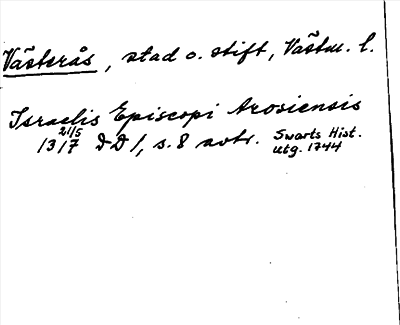 Västerås, stad o. stift, Västm. l.
Israelis Episcopi Arosiensis
21/5
1317 DD 1, s. 8 avtr. Swarts Hist.
utg. 1744